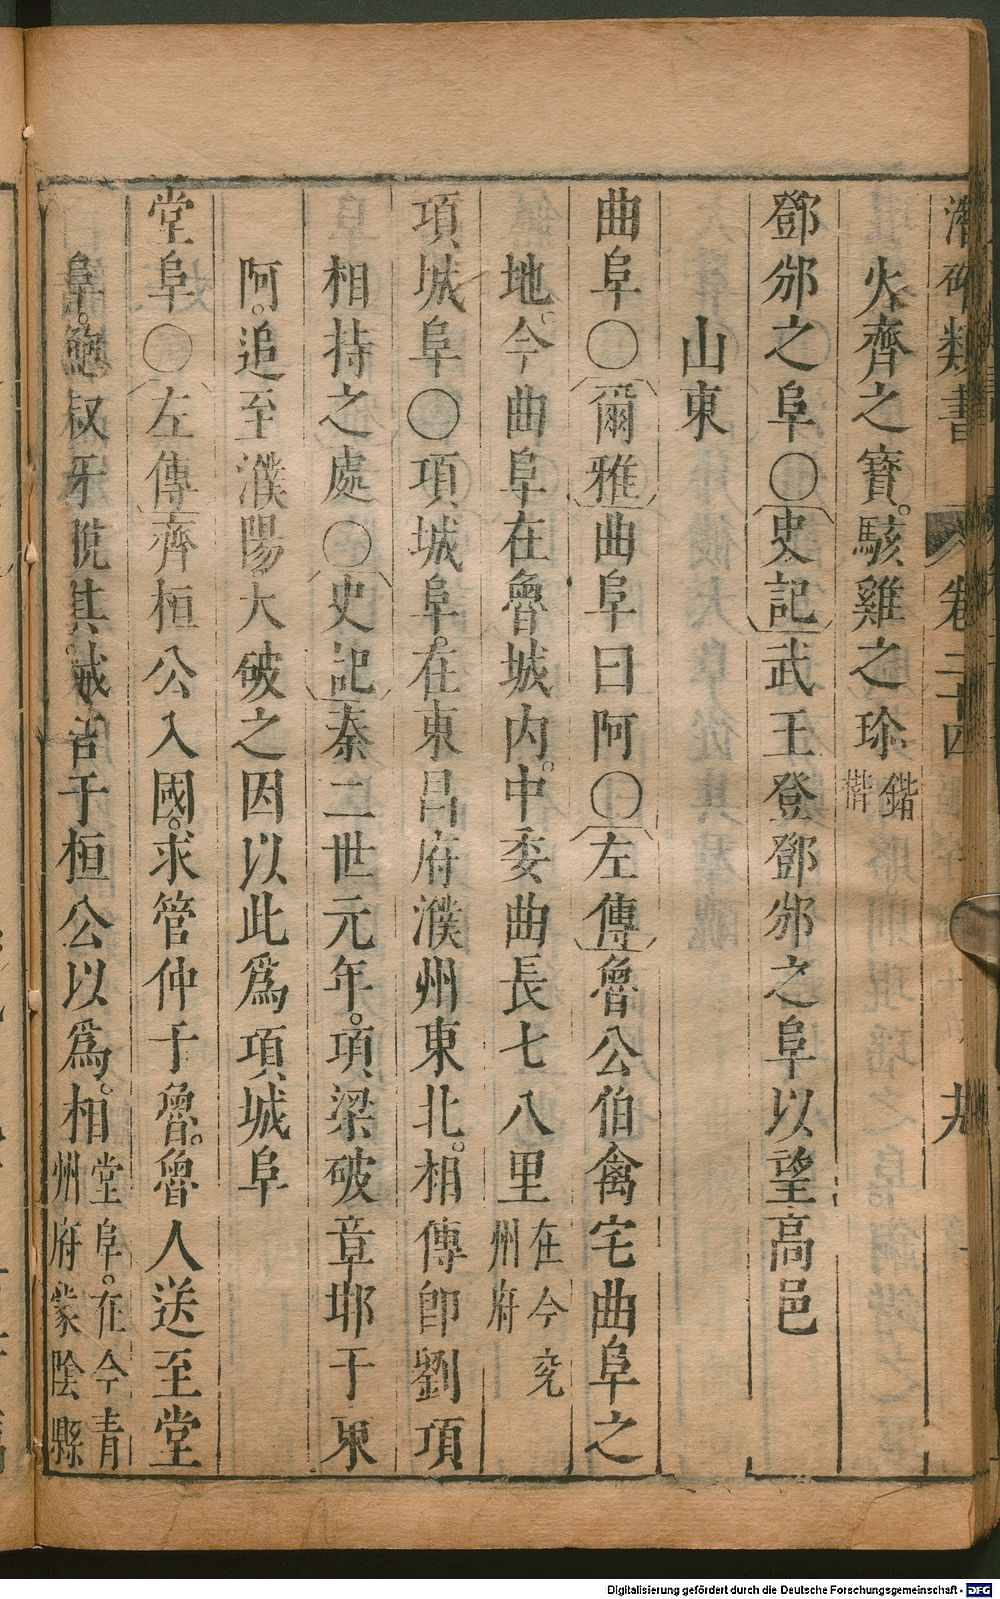 潛碓類書 卷二十四 九
火齊之寶。駭雞之珍 鍇揩
鄧邠之阜○史記武王登鄧邠之阜以望高邑
山東
曲阜○爾雅曲阜曰阿○左傳魯公伯禽宅曲阜之
地。今曲阜在魯城内。中委曲長七八里 在今兖州府
項城阜○項城阜。在東昌府濮州東北。相傳卽劉項
相持之處○史記秦二世元年。項梁破章邯于東
阿。追至濮陽大破之因以此爲項城阜
堂阜○左傳齊桓公入國。求管仲于魯。魯人送至堂
阜。鮑叔牙脫其。言于桓公以爲。相 堂阜。在今青州府蒙陰縣
Digitalisierung gefördert durch die Deutsche Forschungsgemeinschaft - DFG